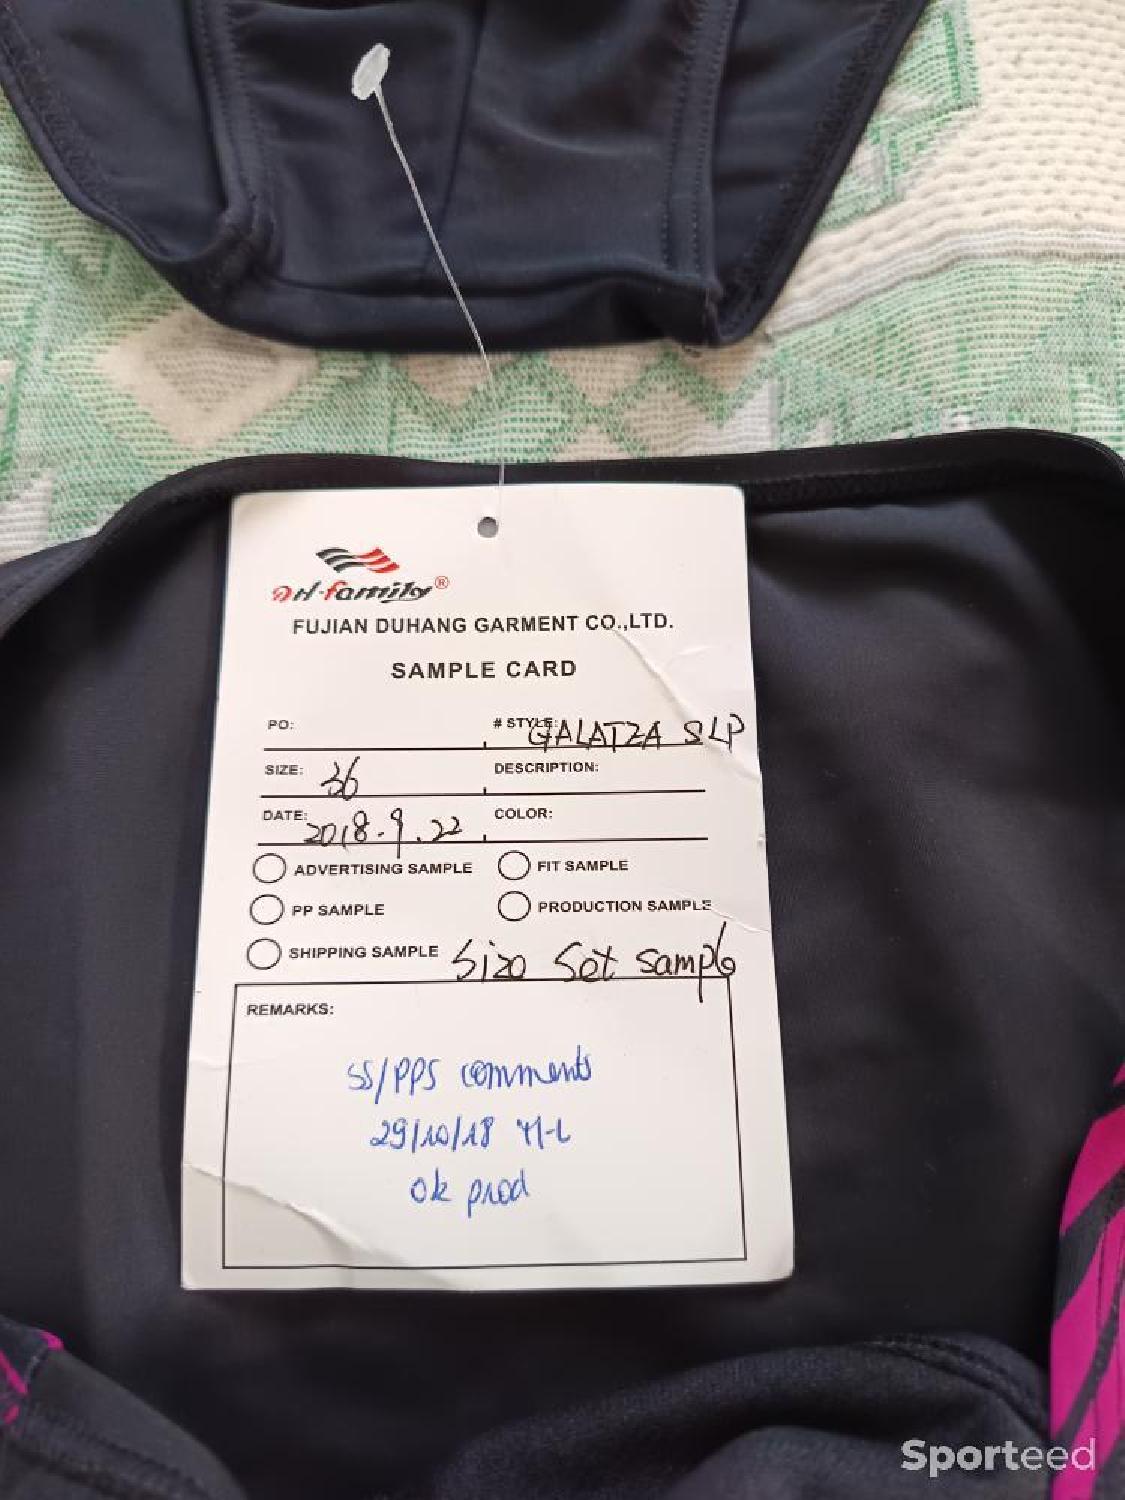 DH-family®
FUJIAN DUHANG GARMENT CO.,LTD.
SAMPLE CARD
PO: # STYLE: GALATZA SLP
SIZE: 36 DESCRIPTION:
DATE: 2018.9.22 COLOR:
ADVERTISING SAMPLE FIT SAMPLE
PP SAMPLE PRODUCTION SAMPLE
SHIPPING SAMPLE Size Set Sample
REMARKS:
SS/PPS comments
29/10/18
ok prod
Sporteed